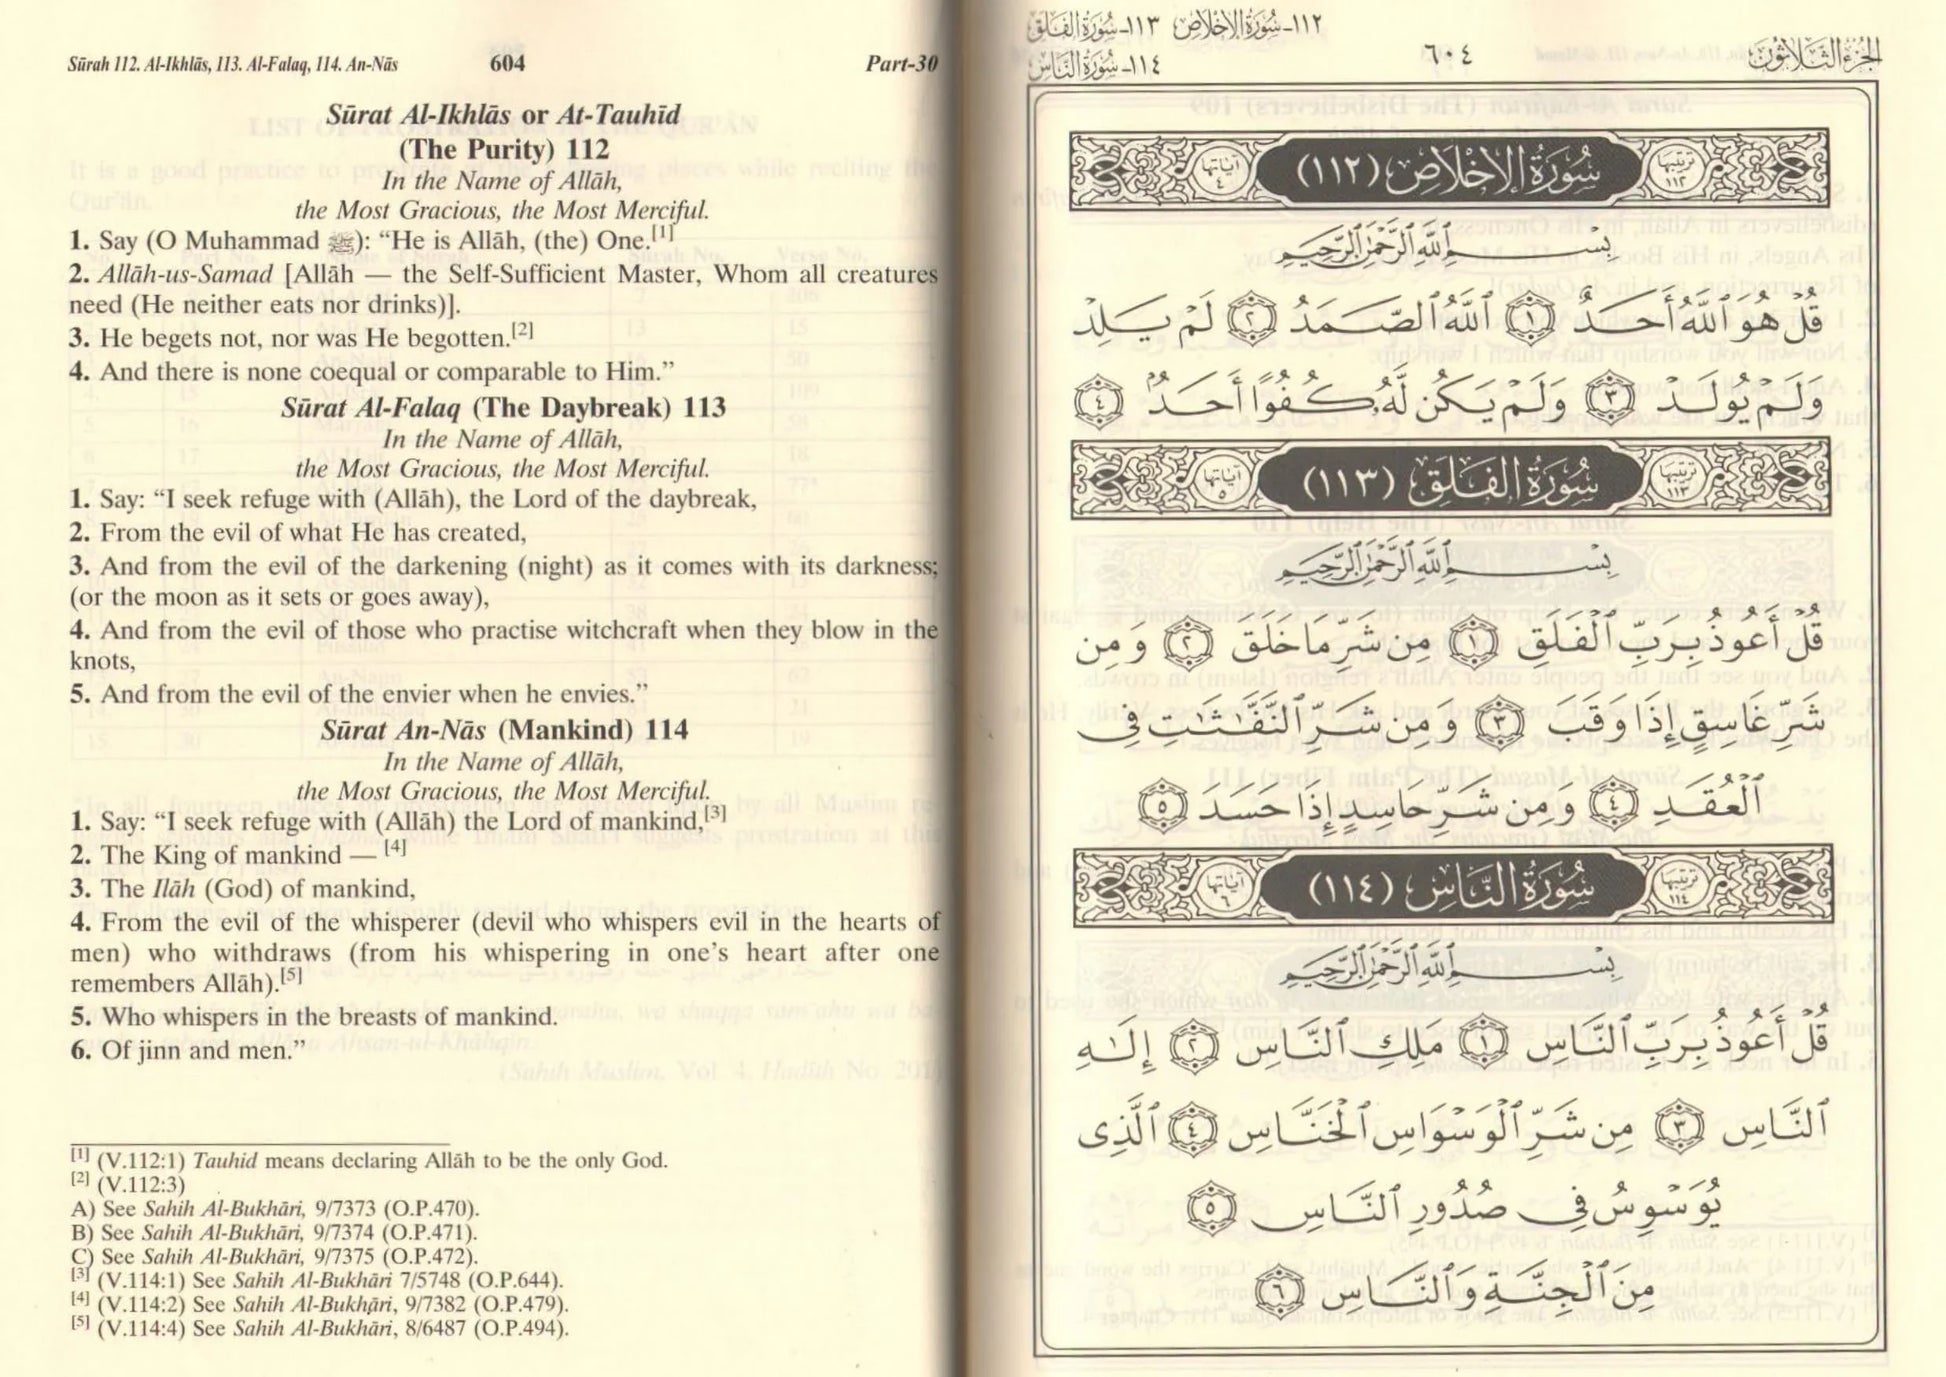 Sūrah 112. Al-Ikhlās, 113. Al-Falaq, 114. An-Nās 604 Part-30
Sūrat Al-Ikhlās or At-Tauhīd
(The Purity) 112
In the Name of Allāh,
the Most Gracious, the Most Merciful.
1. Say (O Muhammad ﷺ): “He is Allāh, (the) One.[1]
2. Allāh-us-Samad [Allāh — the Self-Sufficient Master, Whom all creatures
need (He neither eats nor drinks)].
3. He begets not, nor was He begotten.[2]
4. And there is none coequal or comparable to Him.”
Sūrat Al-Falaq (The Daybreak) 113
In the Name of Allāh,
the Most Gracious, the Most Merciful.
1. Say: “I seek refuge with (Allāh), the Lord of the daybreak,
2. From the evil of what He has created,
3. And from the evil of the darkening (night) as it comes with its darkness;
(or the moon as it sets or goes away),
4. And from the evil of those who practise witchcraft when they blow in the
knots,
5. And from the evil of the envier when he envies.”
Sūrat An-Nās (Mankind) 114
In the Name of Allāh,
the Most Gracious, the Most Merciful.
1. Say: “I seek refuge with (Allāh) the Lord of mankind,[3]
2. The King of mankind — [4]
3. The Ilāh (God) of mankind,
4. From the evil of the whisperer (devil who whispers evil in the hearts of
men) who withdraws (from his whispering in one’s heart after one
remembers Allāh).[5]
5. Who whispers in the breasts of mankind.
6. Of jinn and men.”
[1] (V.112:1) Tauhid means declaring Allāh to be the only God.
[2] (V.112:3)
A) See Sahih Al-Bukhāri, 9/7373 (O.P.470).
B) See Sahih Al-Bukhāri, 9/7374 (O.P.471).
C) See Sahih Al-Bukhāri, 9/7375 (O.P.472).
[3] (V.114:1) See Sahih Al-Bukhāri 7/5748 (O.P.644).
[4] (V.114:2) See Sahih Al-Bukhāri, 9/7382 (O.P.479).
[5] (V.114:4) See Sahih Al-Bukhāri, 8/6487 (O.P.494).
١١٢ـ سُورَةُ الإِخْلَاص ١١٣ـ سُورَةُ الفَلَق
الجُزءُ الثَّلَاثُونَ ٦٠٤ ١١٤ـ سُورَةُ النَّاس
ترتيبها ١١٢ سُورَةُ الإِخْلَاصِ (١١٢) آياتها ٤
بِسْمِ ٱللَّهِ ٱلرَّحْمَٰنِ ٱلرَّحِيمِ
قُلْ هُوَ ٱللَّهُ أَحَدٌ ١ ٱللَّهُ ٱلصَّمَدُ ٢ لَمْ يَلِدْ
وَلَمْ يُولَدْ ٣ وَلَمْ يَكُن لَّهُۥ كُفُوًا أَحَدٌۢ ٤
ترتيبها ١١٣ سُورَةُ الفَلَقِ (١١٣) آياتها ٥
بِسْمِ ٱللَّهِ ٱلرَّحْمَٰنِ ٱلرَّحِيمِ
قُلْ أَعُوذُ بِرَبِّ ٱلْفَلَقِ ١ مِن شَرِّ مَا خَلَقَ ٢ وَمِن
شَرِّ غَاسِقٍ إِذَا وَقَبَ ٣ وَمِن شَرِّ ٱلنَّفَّٰثَٰتِ فِى
ٱلْعُقَدِ ٤ وَمِن شَرِّ حَاسِدٍ إِذَا حَسَدَ ٥
ترتيبها ١١٤ سُورَةُ النَّاسِ (١١٤) آياتها ٦
بِسْمِ ٱللَّهِ ٱلرَّحْمَٰنِ ٱلرَّحِيمِ
قُلْ أَعُوذُ بِرَبِّ ٱلنَّاسِ ١ مَلِكِ ٱلنَّاسِ ٢ إِلَٰهِ
ٱلنَّاسِ ٣ مِن شَرِّ ٱلْوَسْوَاسِ ٱلْخَنَّاسِ ٤ ٱلَّذِى
يُوَسْوِسُ فِى صُدُورِ ٱلنَّاسِ ٥
مِنَ ٱلْجِنَّةِ وَٱلنَّاسِ ٦